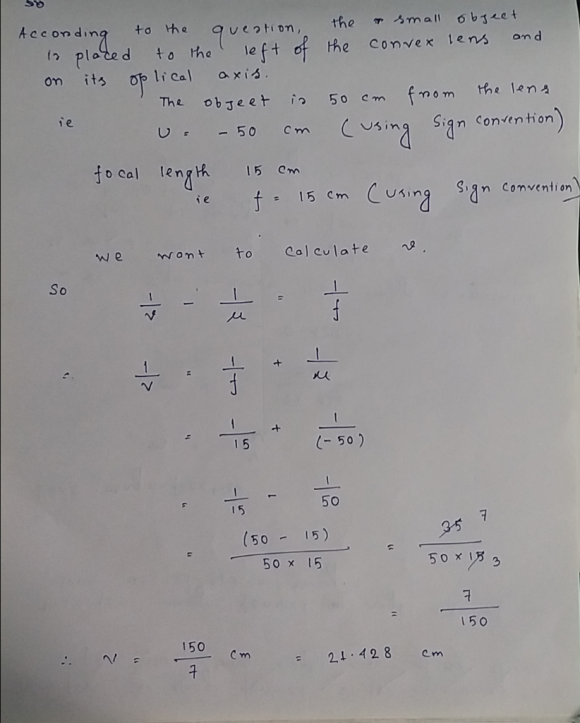 According to the question, the small object
is placed to the left of the convex lens and
on its oplical axis.
The object is 50 cm from the lens
ie U = - 50 cm (Using Sign convention)
focal length 15 cm
ie f = 15 cm (Using Sign convention)
we want to calculate v.
So 1/v - 1/u = 1/f
∴ 1/v = 1/f + 1/u
= 1/15 + 1/(-50)
= 1/15 - 1/50
= (50 - 15)/50 × 15 = 35 7/50 × 15 3
= 7/150
∴ v = 150/7 cm = 21.428 cm